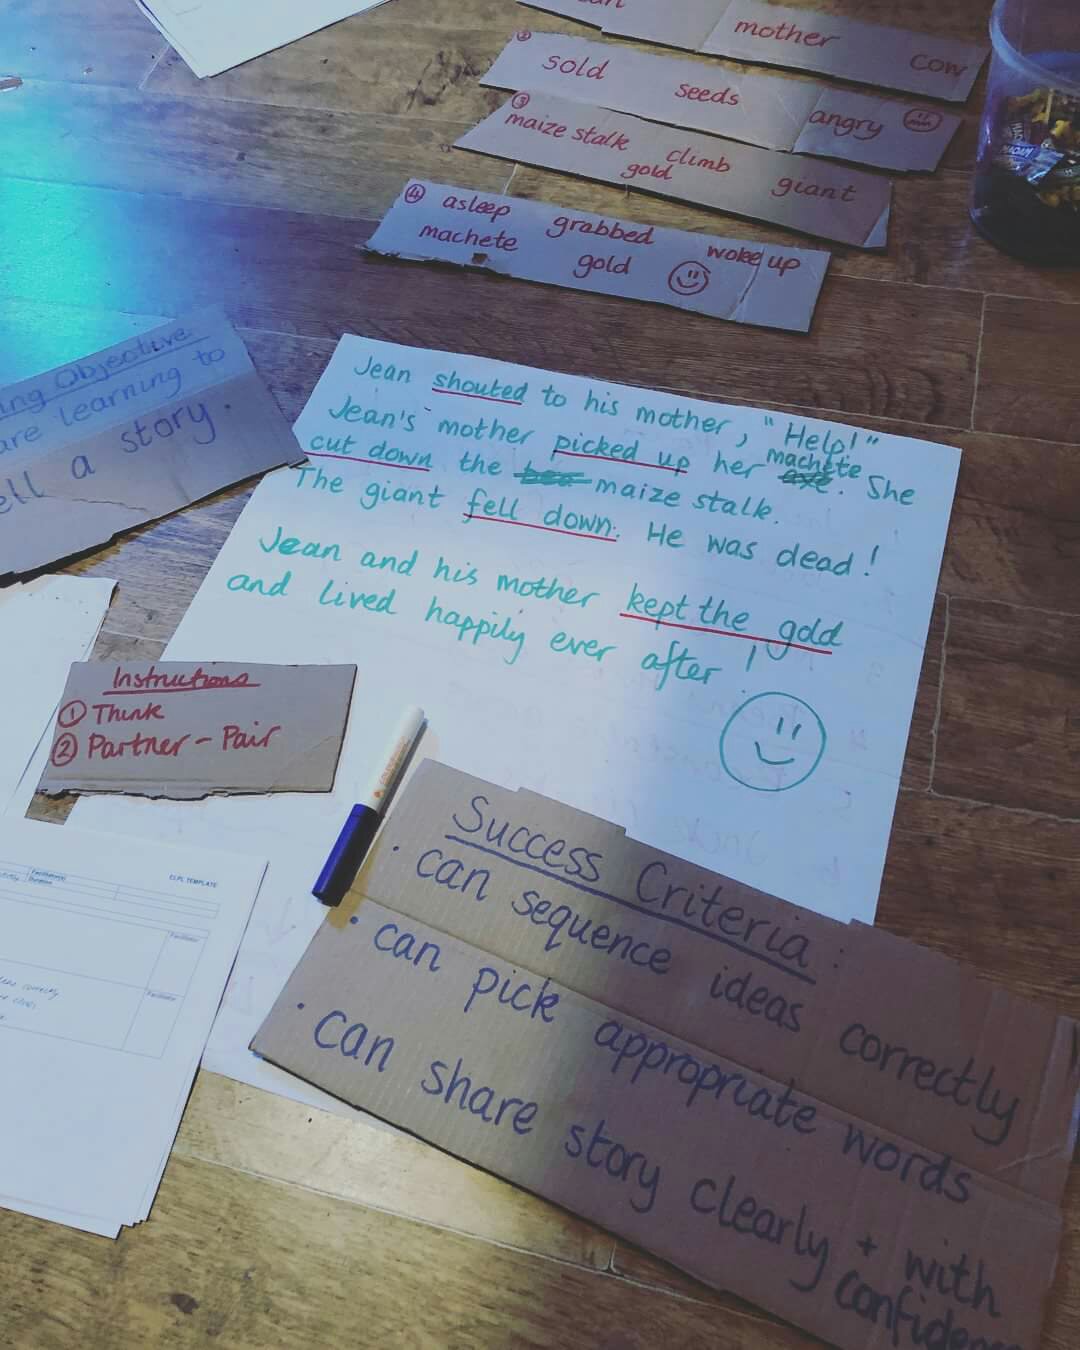 mother cow
② sold seeds angry
③ maize stalk climb giant
gold
④ asleep grabbed woke up
machete gold
Objective
are learning to
tell a story.
Jean shouted to his mother, "Help!"
Jean's mother picked up her machete. She
cut down the maize stalk.
The giant fell down. He was dead!
Jean and his mother kept the gold
and lived happily ever after!
Instructions
① Think
② Partner - Pair
Success Criteria:
· can sequence ideas correctly
· can pick appropriate words
· can share story clearly + with
confidence
TEMPLATE
Facilitator
Facilitator
correctly